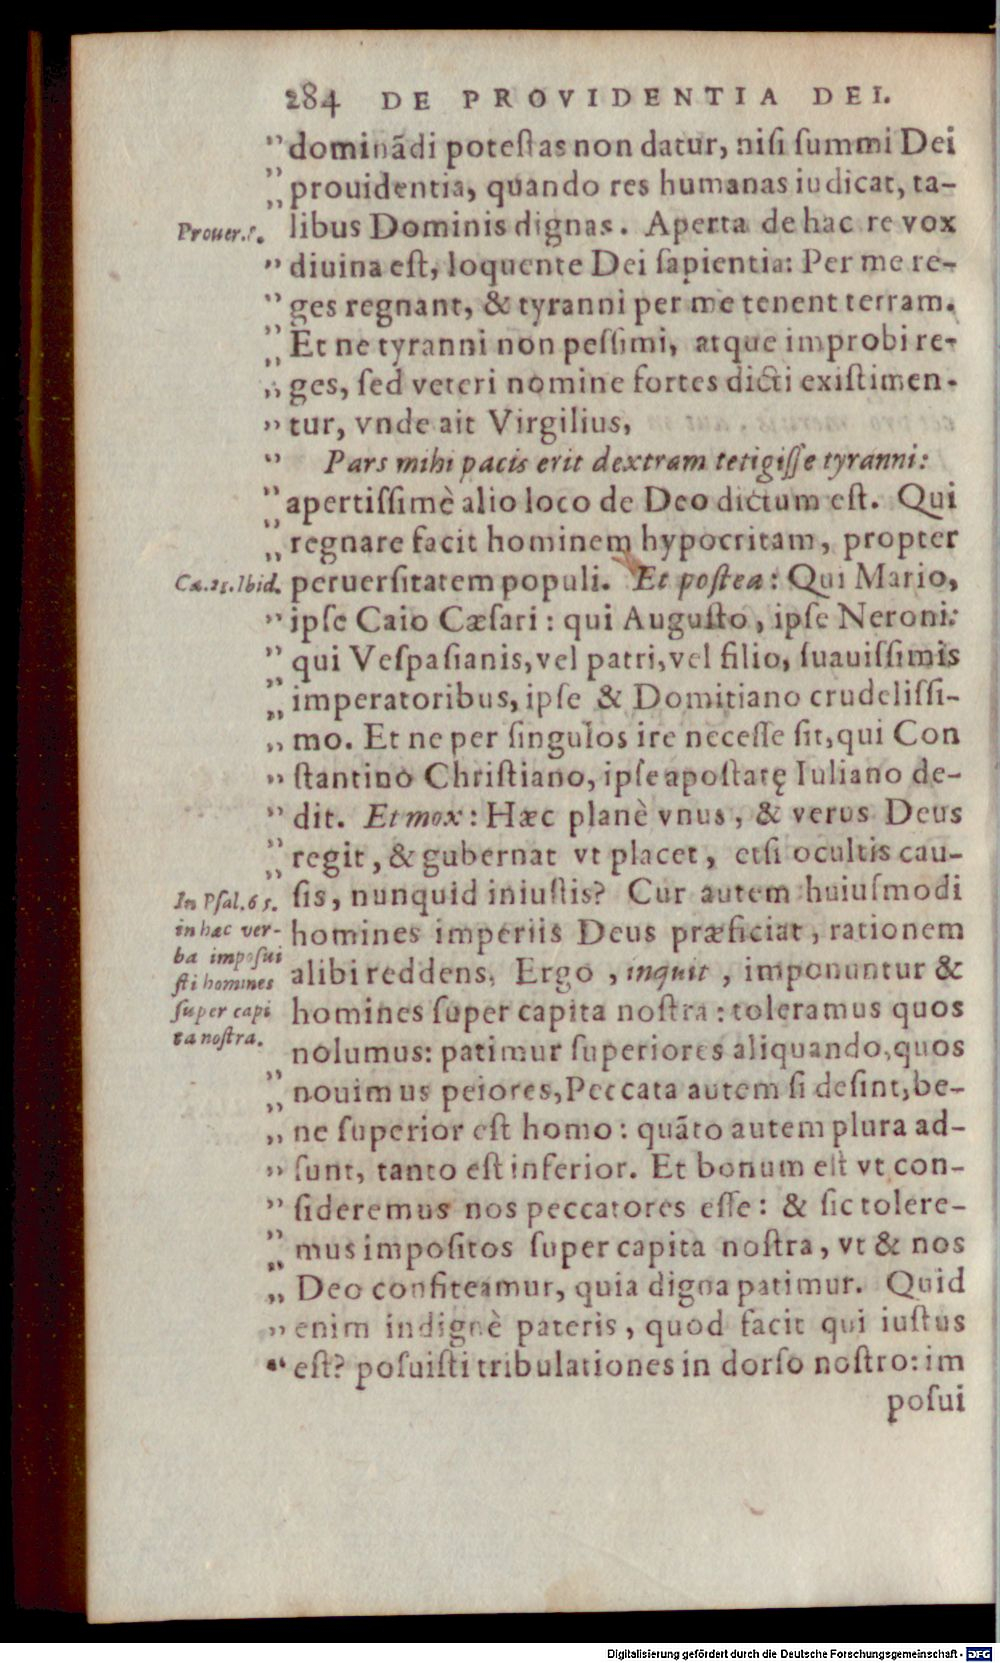 284 DE PROVIDENTIA DEI.
"dominãdi potestas non datur, nisi summi Dei
"prouidentia, quando res humanas iudicat, ta-
Prouer.8. libus Dominis dignas. Aperta de hac re vox
"diuina est, loquente Dei sapientia: Per me re-
"ges regnant, & tyranni per me tenent terram.
"Et ne tyranni non pessimi, atque improbi re-
"ges, sed veteri nomine fortes dicti existimen-
"tur, vnde ait Virgilius,
" Pars mihi pacis erit dextram tetigisse tyranni:
"apertissimè alio loco de Deo dictum est. Qui
"regnare facit hominem hypocritam, propter
Ca.21.Ibid. peruersitatem populi. Et postea: Qui Mario,
"ipse Caio Cæsari: qui Augusto, ipse Neroni:
"qui Vespasianis, vel patri, vel filio, suauissimis
"imperatoribus, ipse & Domitiano crudelissi-
"mo. Et ne per singulos ire necesse sit, qui Con
"stantino Christiano, ipse apostatę Iuliano de-
"dit. Et mox: Hæc planè vnus, & verus Deus
"regit, & gubernat vt placet, etsi ocultis cau-
sis, nunquid iniustis? Cur autem huiusmodi
homines imperiis Deus præficiat, rationem
alibi reddens, Ergo, inquit, imponuntur &
homines super capita nostra: toleramus quos
nolumus: patimur superiores aliquando, quos
In Psal.65.
in hac ver-
ba imposui
sti homines
super capi
ta nostra.
"nouimus peiores, Peccata autem si desint, be-
"ne superior est homo: quãto autem plura ad-
"sunt, tanto est inferior. Et bonum est vt con-
"sideremus nos peccatores esse: & sic tolere-
"mus impositos super capita nostra, vt & nos
"Deo confiteamur, quia digna patimur. Quid
"enim indignè pateris, quod facit qui iustus
"est? posuisti tribulationes in dorso nostro: im
posui
Digitalisierung gefördert durch die Deutsche Forschungsgemeinschaft - DFG